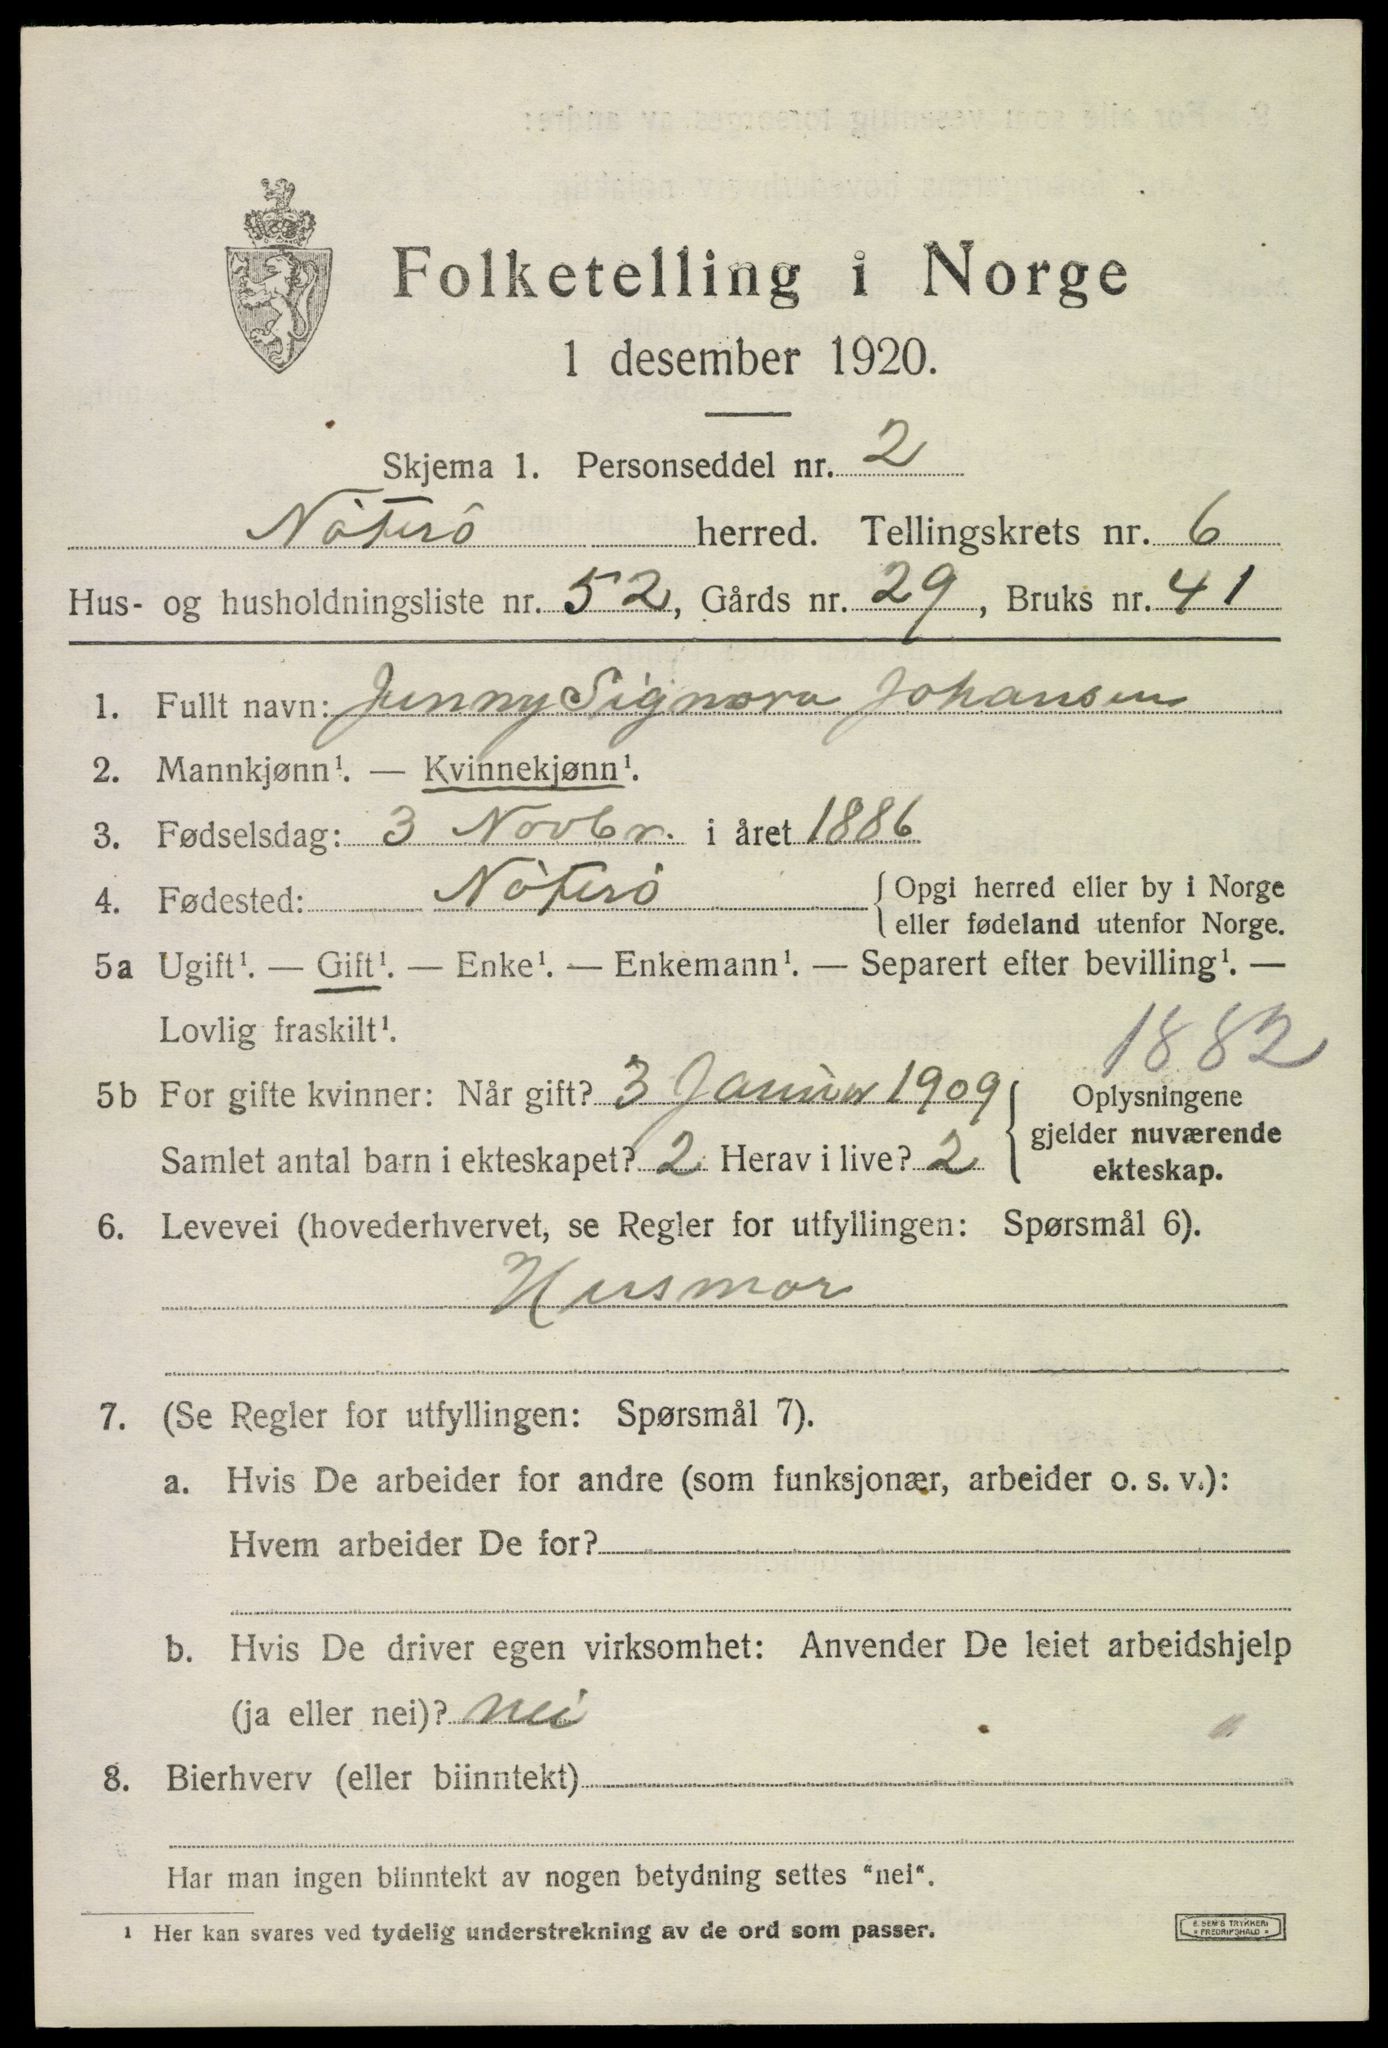 Folketelling i Norge
1 desember 1920.
Skjema 1. Personseddel nr. 2
Nøterö herred. Tellingskrets nr. 6
Hus- og husholdningsliste nr. 52, Gårds nr. 29, Bruks nr. 41
1. Fullt navn: Jenny Signora Johansen
2. Mannkjønn¹. — Kvinnekjønn¹.
3. Fødselsdag: 3 Novbr. i året 1886
4. Fødested: Nøterö { Opgi herred eller by i Norge
eller fødeland utenfor Norge.
5a Ugift¹. — Gift¹. — Enke¹. — Enkemann¹. — Separert efter bevilling¹. —
Lovlig fraskilt¹.
1882
5b For gifte kvinner: Når gift? 3 Januar 1909
Samlet antal barn i ekteskapet? 2 Herav i live? 2
{ Oplysningene
gjelder nuværende
ekteskap.
6. Levevei (hovederhvervet, se Regler for utfyllingen: Spørsmål 6).
Husmor
7. (Se Regler for utfyllingen: Spørsmål 7).
a. Hvis De arbeider for andre (som funksjonær, arbeider o. s. v.):
Hvem arbeider De for?
b. Hvis De driver egen virksomhet: Anvender De leiet arbeidshjelp
(ja eller nei)? nei
8. Bierhverv (eller biinntekt)
Har man ingen biinntekt av nogen betydning settes "nei".
¹ Her kan svares ved tydelig understrekning av de ord som passer.
E. SEM'S TRYKKERI
FREDRIKSHALD